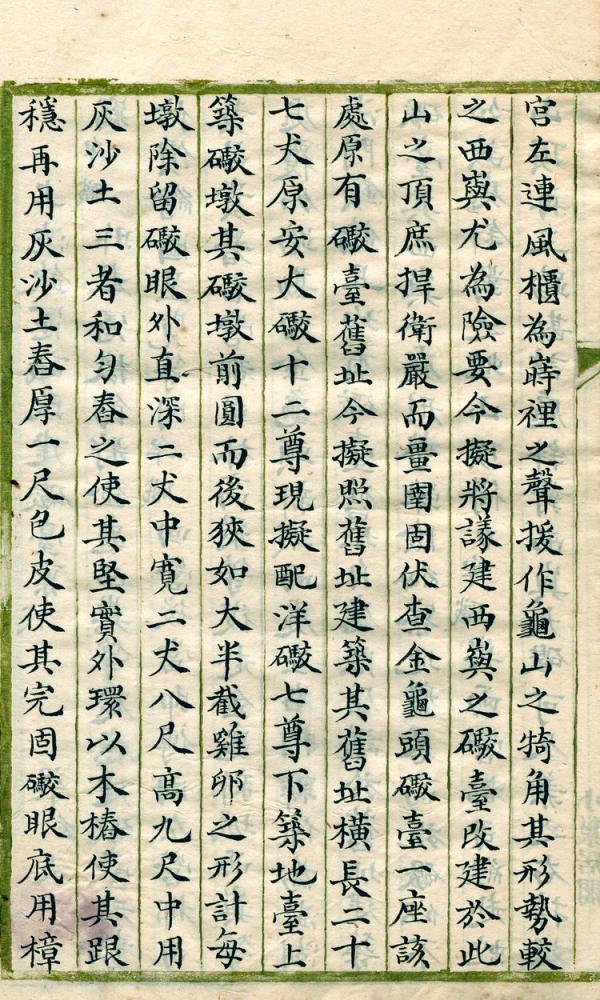 宮左連風櫃為嵵裡之聲援作龜山之犄角其形勢較
之西嶼尤為險要今擬將議建西嶼之礮臺改建於此
山之頂庶捍衛嚴而畺圉固伏查金龜頭礮臺一座該
處原有礮臺舊址今擬照舊址建築其舊址橫長二十
七丈原安大礮十二尊現擬配洋礮七尊下築地臺上
築礮墩其礮墩前圓而後狹如大半截雞卵之形計每
墩除留礮眼外直深二丈中寬二丈八尺高九尺中用
灰沙土三者和勻舂之使其堅實外環以木樁使其跟
穩再用灰沙土舂厚一尺包皮使其完固礮眼底用樟